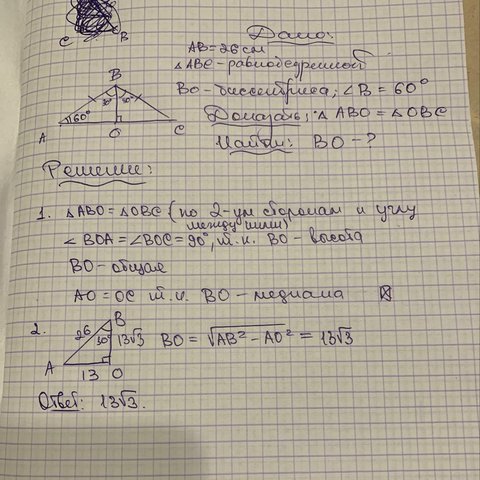 C B
Дано:
AB=26см
△ABC-равнобедренный
BO-биссектриса; ∠B=60°
Доказать: △ABO=△OBC
Найти: BO-?
B
30° 30°
60°
A O C
Решение:
1. △ABO=△OBC (по 2-ум сторонам и углу
между ними)
∠BOA=∠BOC=90°, т.к. BO-высота
BO-общая
AO=OC т.к. BO-медиана
2. B
26 30° 13√3 BO=√AB²-AO²=13√3
A 13 O
Ответ: 13√3.